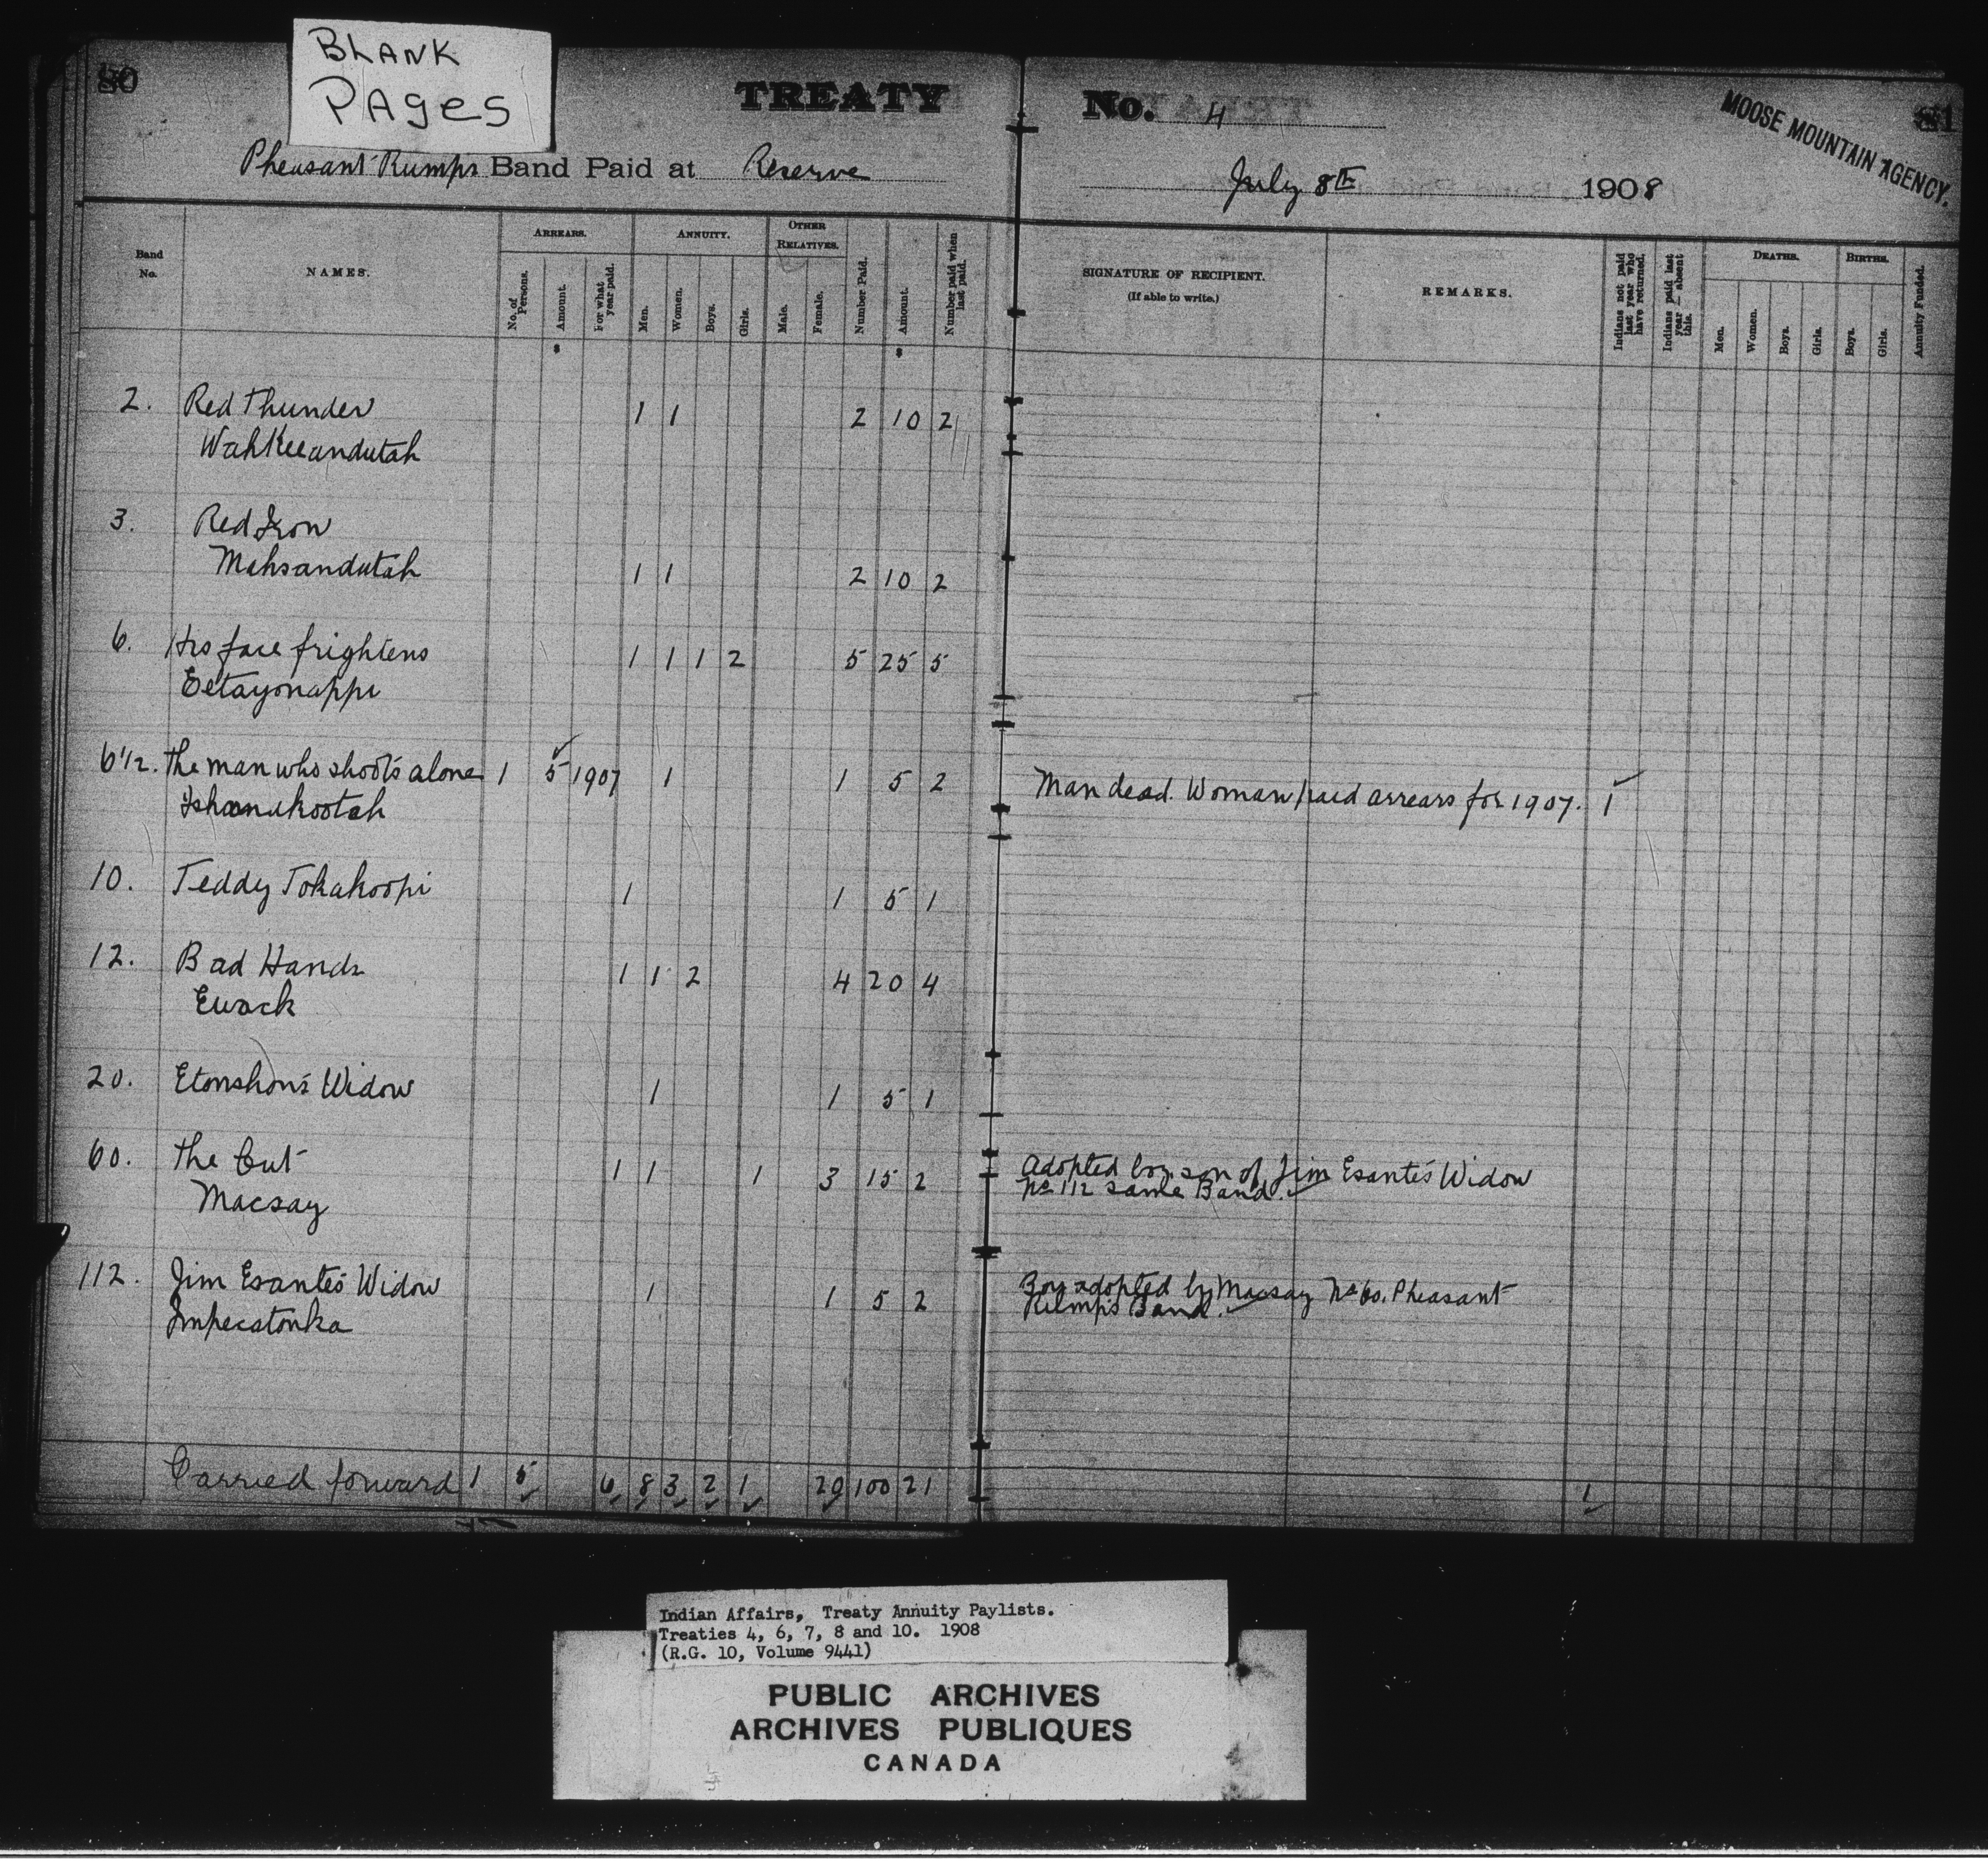 80
BLANK
PAGES
TREATY No. 4
MOOSE MOUNTAIN AGENCY.
81
Pheasant Rumps Band Paid at Reserve July 8th 1908
Band No.
NAMES.
ARREARS.
No. of Persons.
Amount.
For what year paid.
ANNUITY.
Men.
Women.
Boys.
Girls.
OTHER RELATIVES.
Male.
Female.
Number Paid.
Amount.
Number paid when last paid.
SIGNATURE OF RECIPIENT.
(If able to write.)
REMARKS.
Indians not paid last year who have returned.
Indians paid last year — absent this.
DEATHS.
Men.
Women.
Boys.
Girls.
BIRTHS.
Boys.
Girls.
Annuity Funded.
$ $
2. Red Thunder 1 1 2 10 2
WahKeeandutah
3. Red Iron
Mahsandutah 1 1 2 10 2
6. His face frightens 1 1 1 2 5 25 5
Eetayonappi
6 1/2. The man who shoots alone 1 5 1907 1 1 5 2 Man dead. Woman paid arrears for 1907. 1
Ishanakootah
10. Teddy Tokakoopi 1 1 5 1
12. Bad Hands 1 1 2 4 20 4
Ewack
20. Etonshon's Widow 1 1 5 1
60. The Cut 1 1 1 3 15 2 Adopted boy son of Jim Esante's Widow
Macsay No 112 Same Band.
112. Jim Esante's Widow 1 1 5 2 Boy adopted by Macsay No 60. Pheasant
Impecatonka Rump's Band.
Carried forward 1 5 6 8 3 2 1 20 100 21 1
Indian Affairs, Treaty Annuity Paylists.
Treaties 4, 6, 7, 8 and 10. 1908
(R.G. 10, Volume 9441)
PUBLIC ARCHIVES
ARCHIVES PUBLIQUES
CANADA